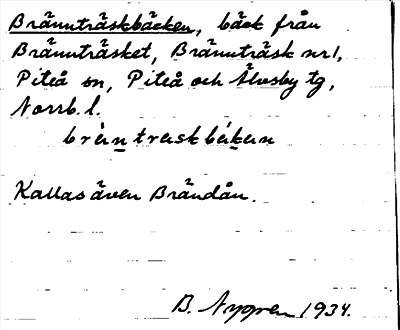 Brännträskbäcken, bäck från
Brännträsket, Brännträsk nr 1,
Piteå sn, Piteå och Älvsby tg,
Norrb. l.
Kallas även Brändån.
B. Nygren 1934.